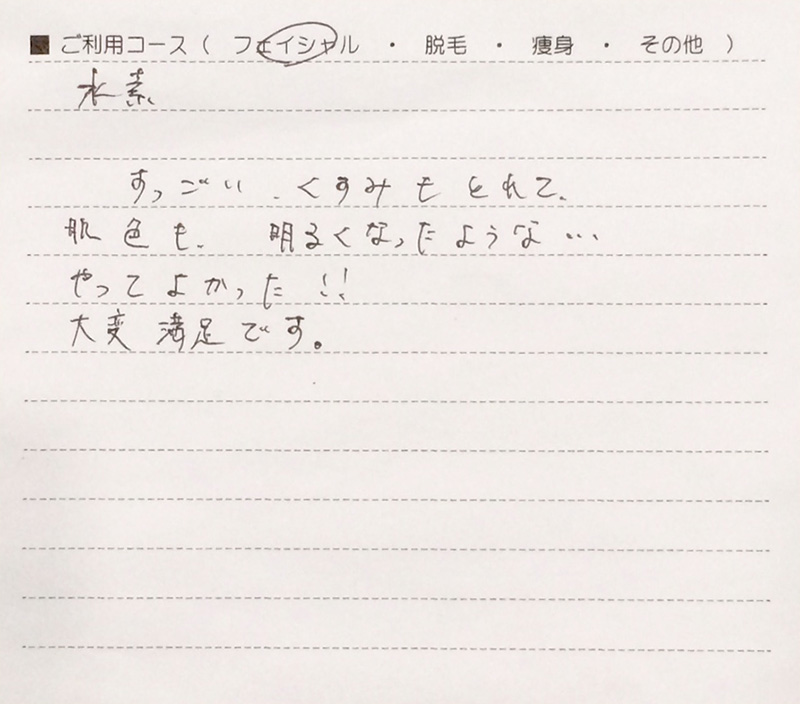 ■ ご利用コース（ フェイシャル ・ 脱毛 ・ 痩身 ・ その他 ）
水素
すっごい、くすみもとれて、
肌色も、 明るくなったような…
やってよかった!!
大変満足です。